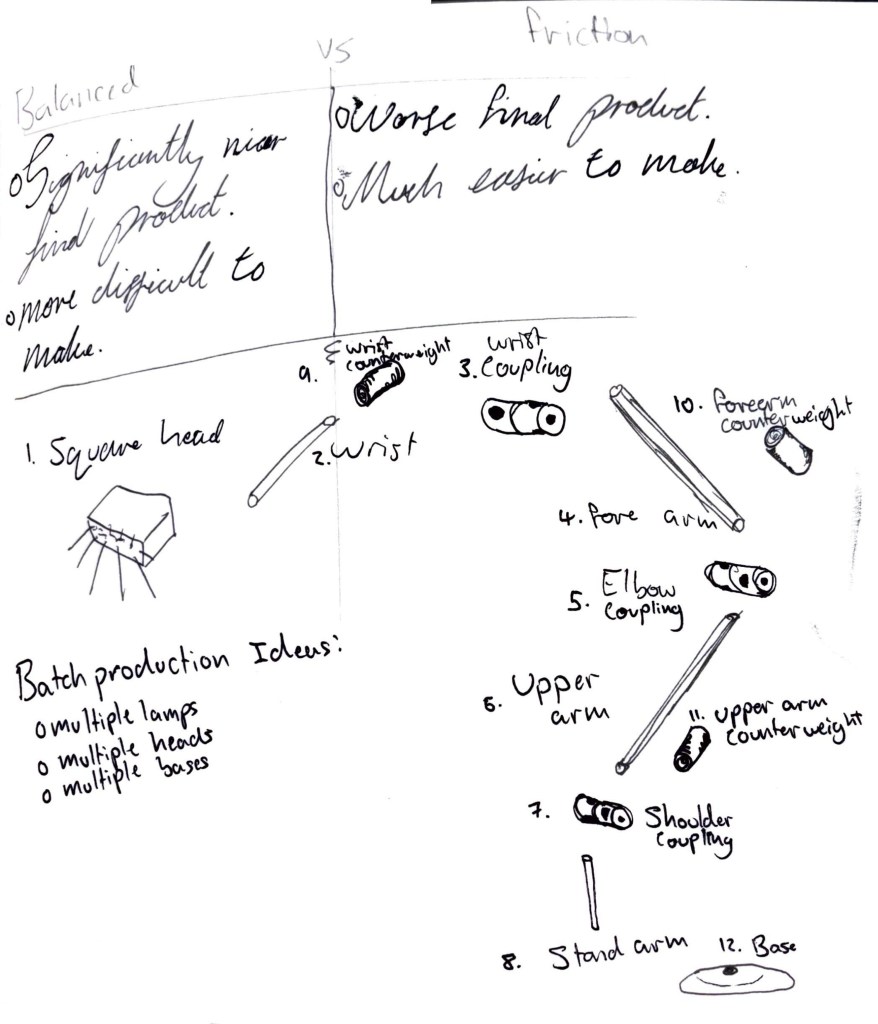 Balanced
vs
friction
o Significantly nicer
final product.
o more difficult to
make.
o Worse final product.
o Much easier to make.
1. Square head
2. Wrist
9. wrist
counterweight
3. wrist
coupling
10. forearm
counterweight
4. fore arm
5. Elbow
coupling
6. Upper
arm
11. upper arm
counterweight
7. Shoulder
coupling
8. Stand arm
12. Base
Batch production Ideas:
o multiple lamps
o multiple heads
o multiple bases